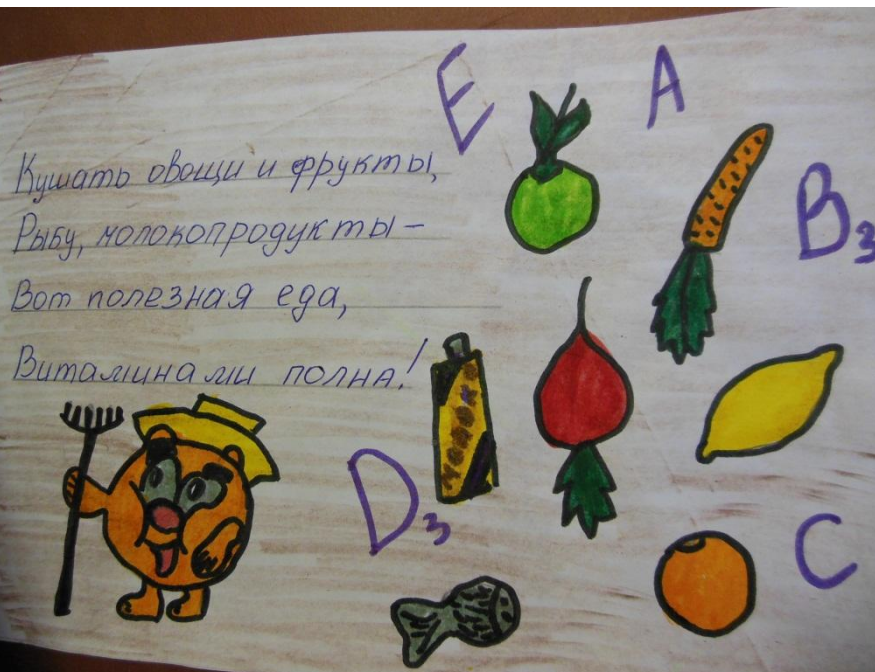 Кушать овощи и фрукты,
Рыбу, молокопродукты –
Вот полезная еда,
Витаминами полна!
E
A
B3
D3
C